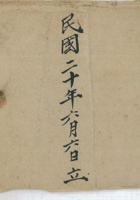 民國二十年六月六日立